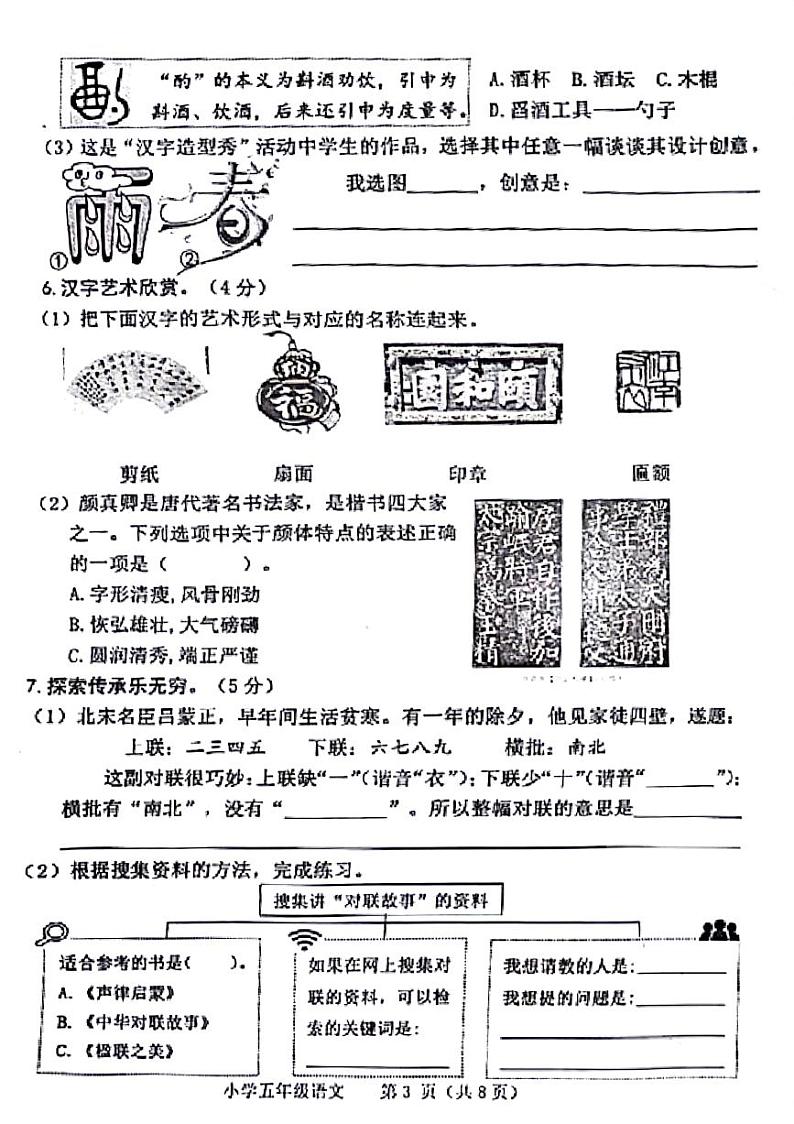 “酌”的本义为斟酒劝饮，引申为
斟酒、饮酒，后来还引申为度量等。
A.酒杯 B.酒坛 C.木棍
D.舀酒工具——勺子
（3）这是“汉字造型秀”活动中学生的作品，选择其中任意一幅谈谈其设计创意。
我选图______，创意是：______
雨
春
① ②
6.汉字艺术欣赏。（4分）
（1）把下面汉字的艺术形式与对应的名称连起来。
福
園和頤
剪纸 扇面 印章 匾额
（2）颜真卿是唐代著名书法家，是楷书四大家
之一。下列选项中关于颜体特点的表述正确
的一项是（ ）。
A.字形清瘦，风骨刚劲
B.恢弘雄壮，大气磅礴
C.圆润清秀，端正严谨
7.探索传承乐无穷。（5分）
（1）北宋名臣吕蒙正，早年间生活贫寒。有一年的除夕，他见家徒四壁，遂题：
上联：二三四五 下联：六七八九 横批：南北
这副对联很巧妙：上联缺“一”（谐音“衣”）；下联少“十”（谐音“______”）；
横批有“南北”，没有“______”。所以整幅对联的意思是______
（2）根据搜集资料的方法，完成练习。
搜集讲“对联故事”的资料
适合参考的书是（ ）。
A.《声律启蒙》
B.《中华对联故事》
C.《楹联之美》
如果在网上搜集对
联的资料，可以检
索的关键词是：
我想请教的人是：______
我想提的问题是：______
小学五年级语文 第3页（共8页）